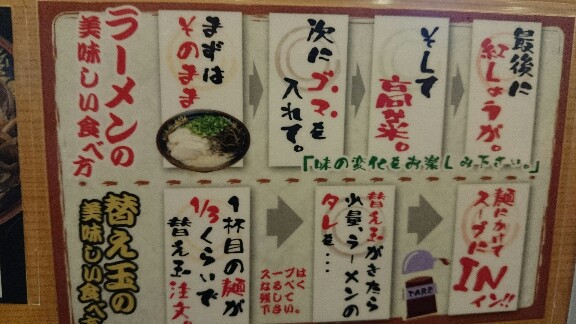 ラーメンの
美味しい食べ方
まずは
そのまま
次にゴマを
入れて。
そして
高菜。
最後に
紅しょうが。
「味の変化をお楽しみ下さい。」
替え玉の
美味しい食べ方
1杯目の麺が
1/3くらいで
替え玉注文。
替え玉がきたら
少量、ラーメンの
タレを・・・
TARE
麺にかけて
スープに
INイン!!